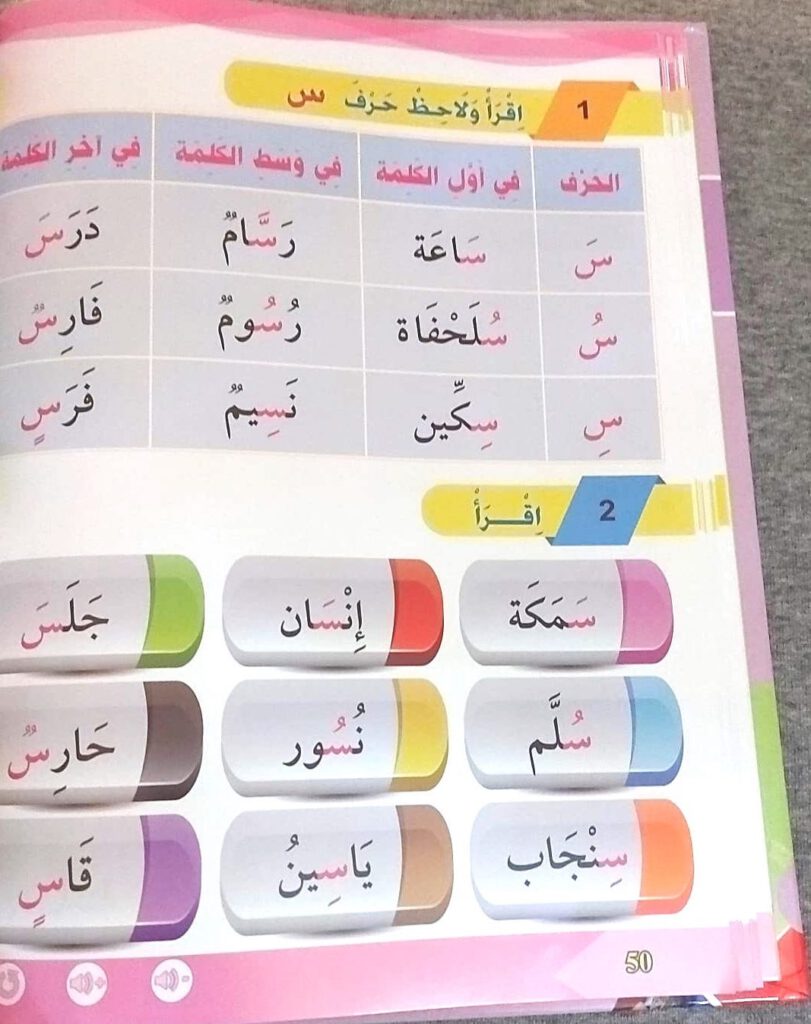 1 اِقْرَأْ وَلَاحِظْ حَرْفَ س
الحَرْف في أوّلِ الكَلِمَة في وَسَطِ الكَلِمَة في آخرِ الكَلِمَة
سَ سَاعَة رَسَّامٌ دَرَسَ
سُ سُلَحْفَاة رُسُومٌ فَارِسٌ
سِ سِكِّين نَسِيمٌ فَرَسٍ
2 اِقْـــرَأْ
سَمَكَة إِنْسَان جَلَسَ
سُلَّم نُسُور حَارِسٌ
سِنْجَاب يَاسِينُ قَاسٍ
50